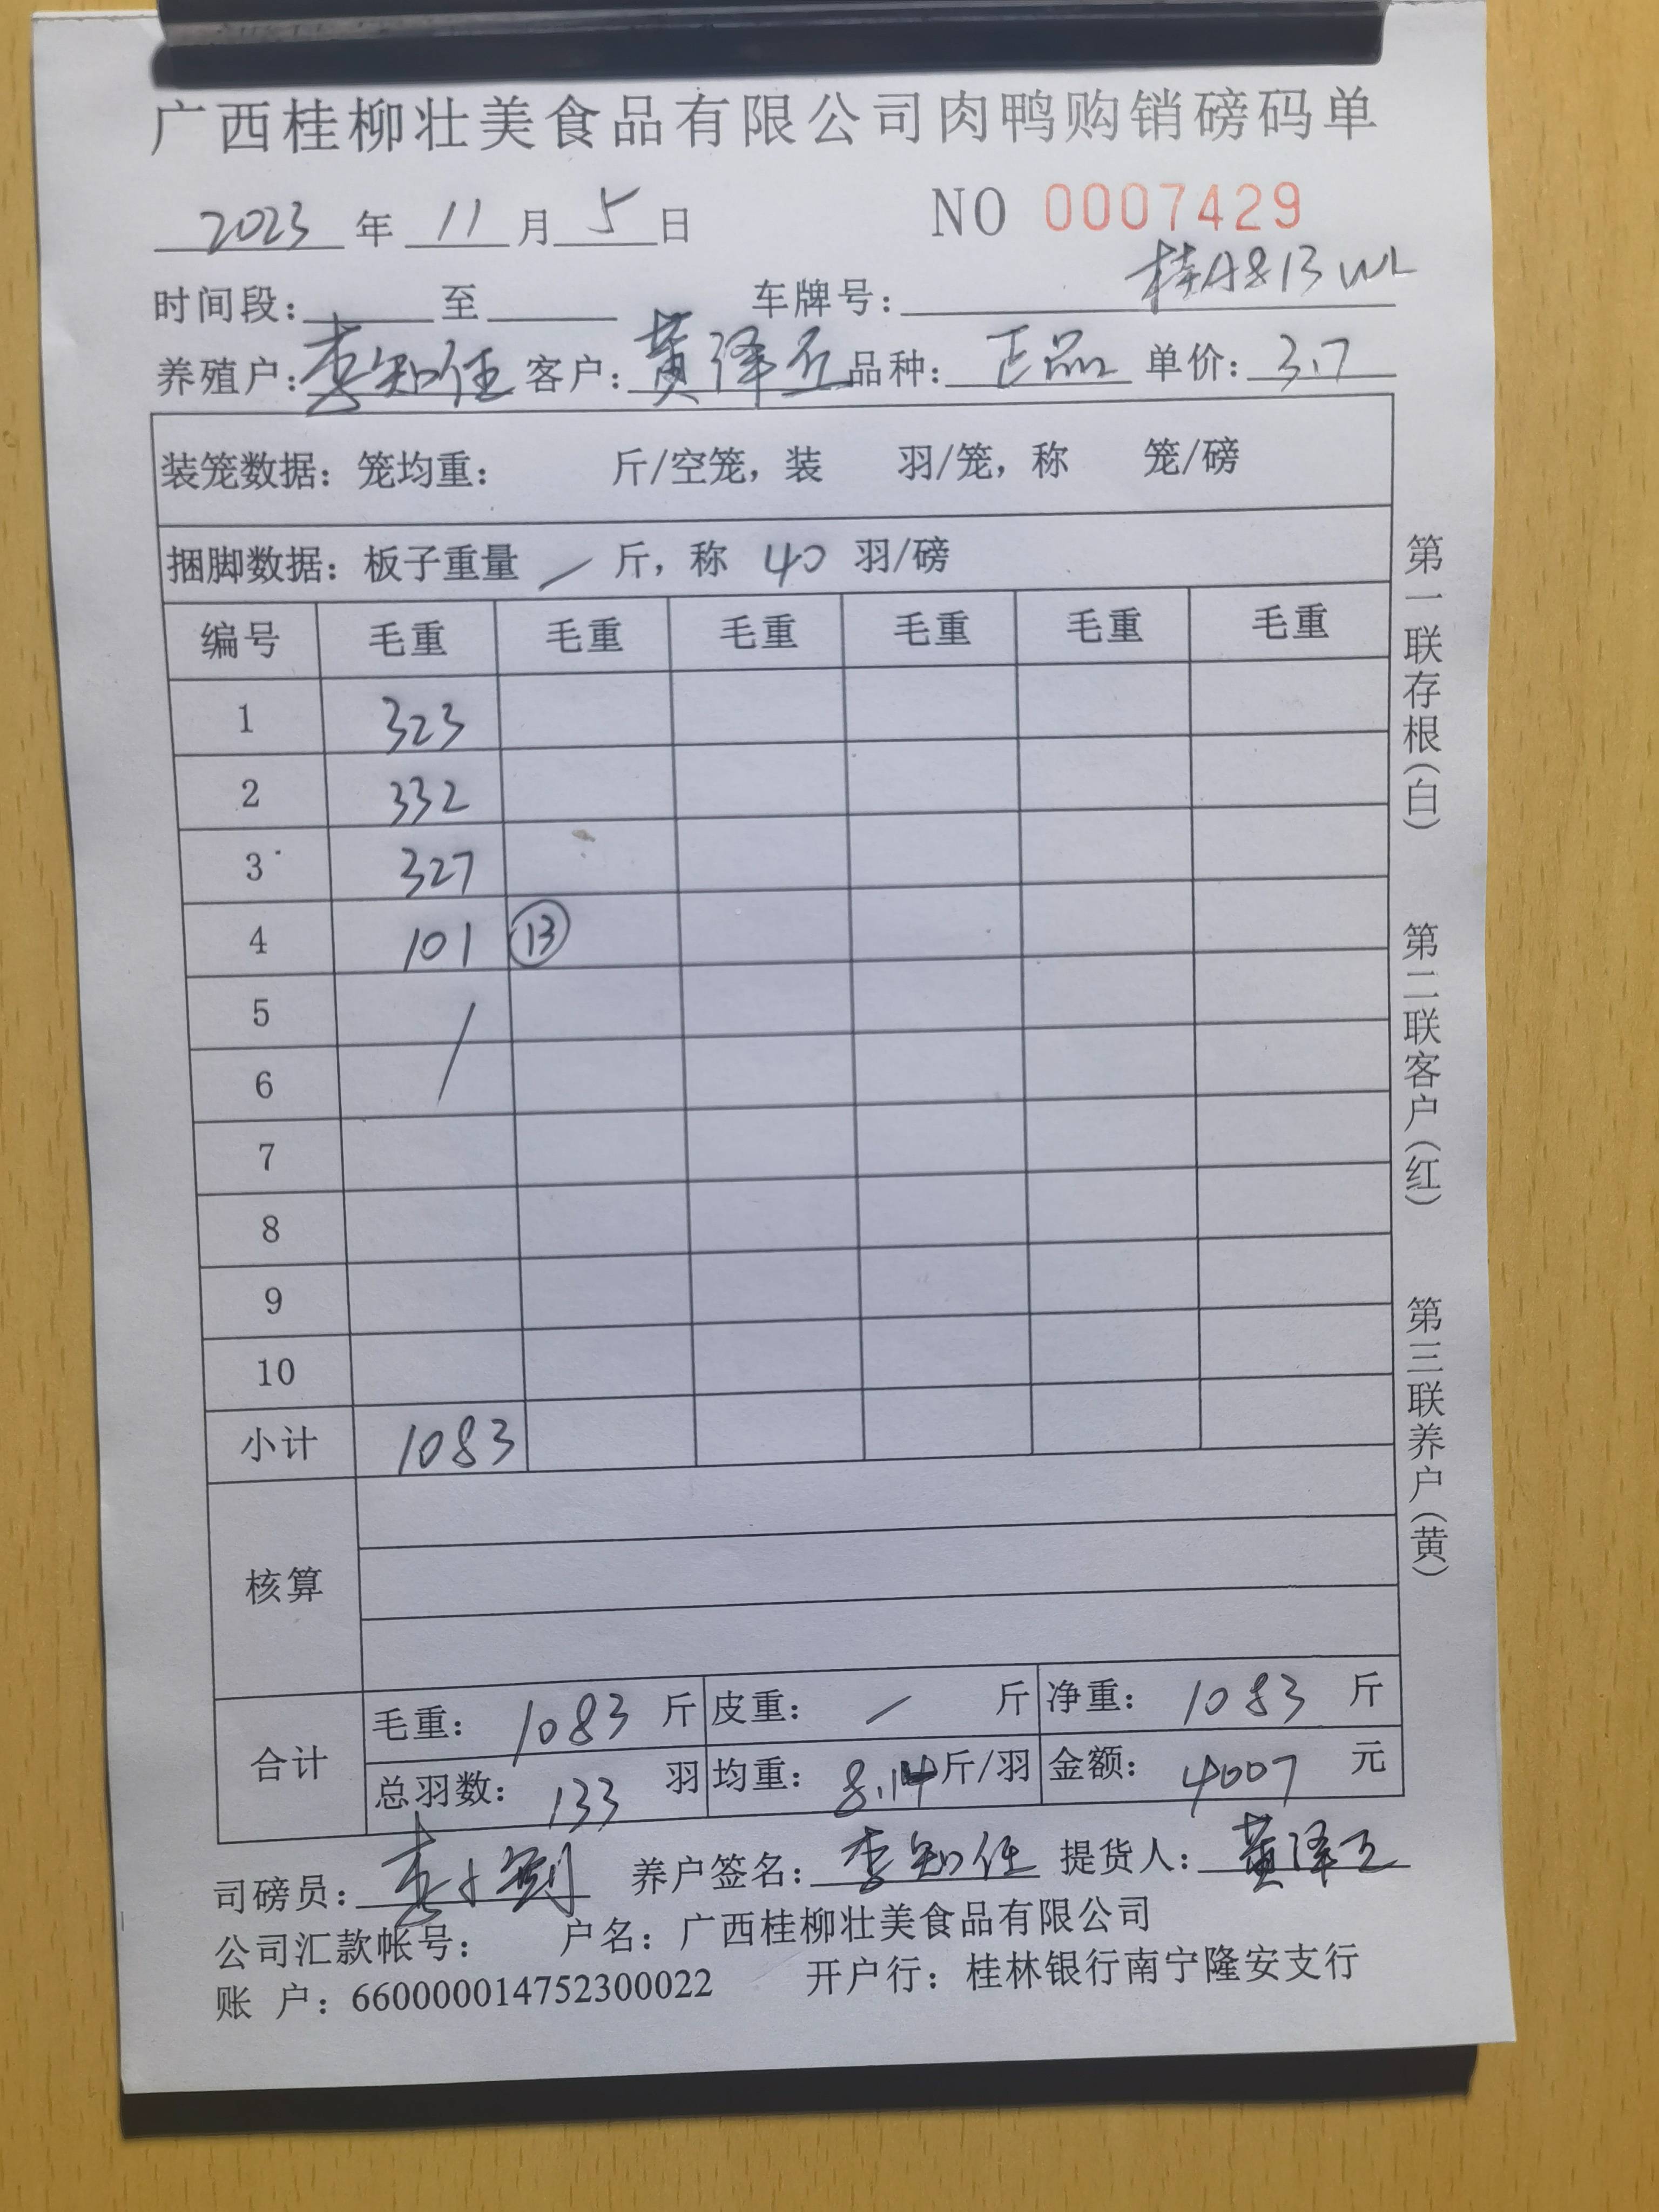 广西桂柳壮美食品有限公司肉鸭购销磅码单
2023 年 11 月 5 日 NO 0007429
时间段: 至 车牌号: 桂A813WL
养殖户: 李知任 客户: 黄泽 品种: 正品 单价: 3.7
装笼数据: 笼均重: 斤/空笼, 装 羽/笼, 称 笼/磅
捆脚数据: 板子重量 / 斤, 称 40 羽/磅
编号 毛重 毛重 毛重 毛重 毛重 毛重
1 323
2 332
3 327
4 101 ⑬
5 /
6
7
8
9
10
小计 1083
核算
合计 毛重: 1083 斤 皮重: / 斤 净重: 1083 斤
总羽数: 133 羽 均重: 8.14 斤/羽 金额: 4007 元
司磅员: 养户签名: 李知任 提货人: 黄泽
公司汇款帐号: 户名: 广西桂柳壮美食品有限公司
账 户: 660000014752300022 开户行: 桂林银行南宁隆安支行
第一联存根(白) 第二联客户(红) 第三联养户(黄)